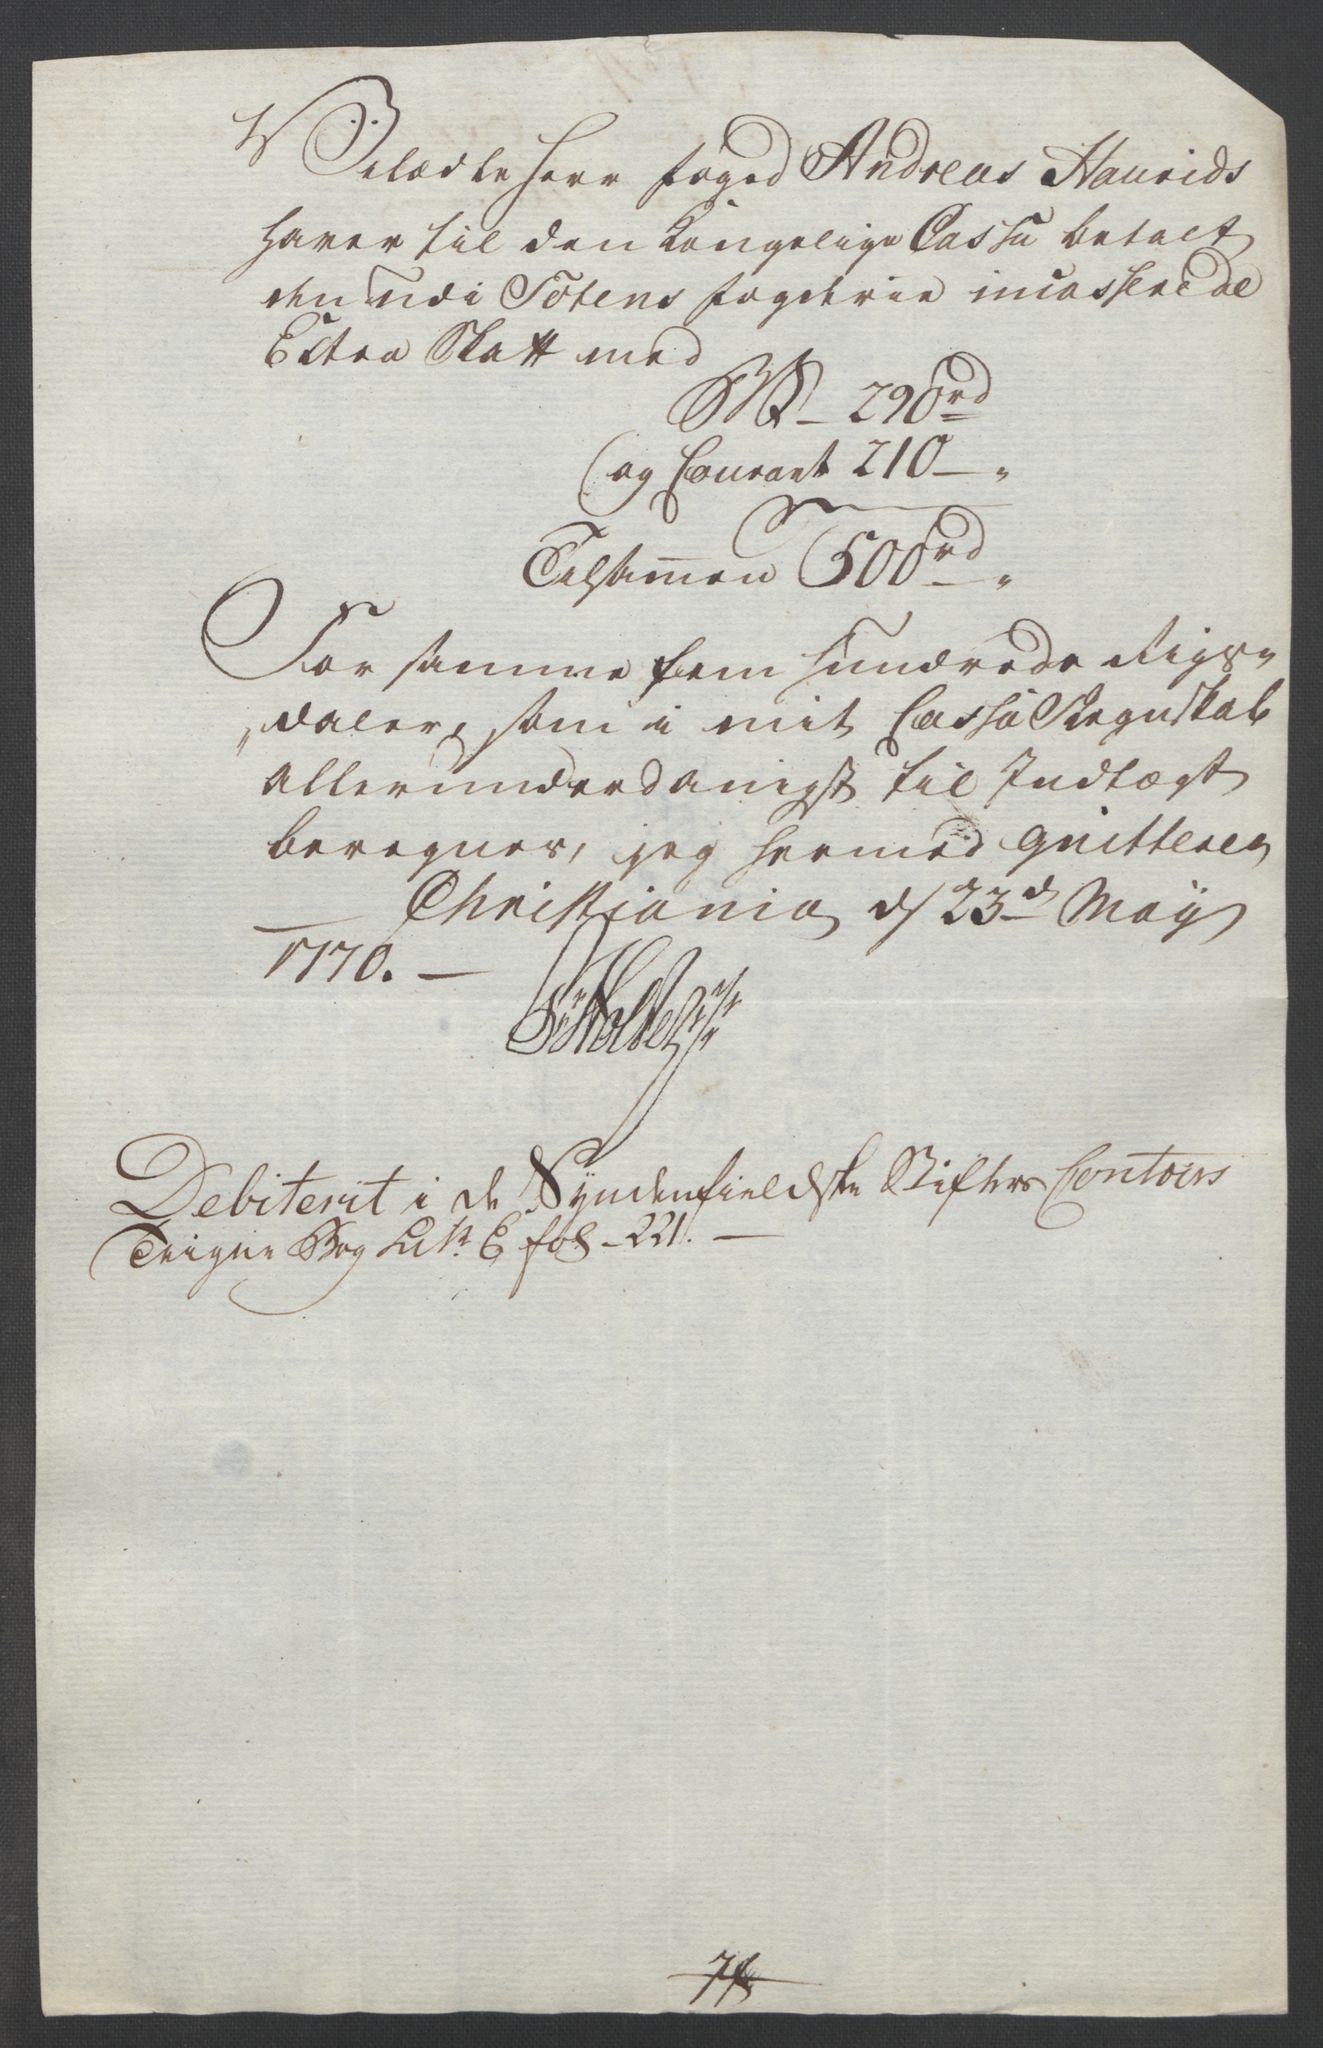 Velædle Herr Foged Andreas Haurids
haver til den Kongelige Cassa betalt
den udi Totens Fogderie incasserede
Extra Skatt med
290 rd
og Courant 210 — „
Tilsamen 500 rd — „
For samme fem hundrede Rigs„
„daler, som i mit Cassa Regnskab
allerunderdanigst til Indtægt
beregnes, jeg hermed qvitterer
Christiania d/ 23d Maÿ
1770. —
Debiterit i de Syndenfieldske Stifters Contoirs
Bog Litr. E fol – 221. —